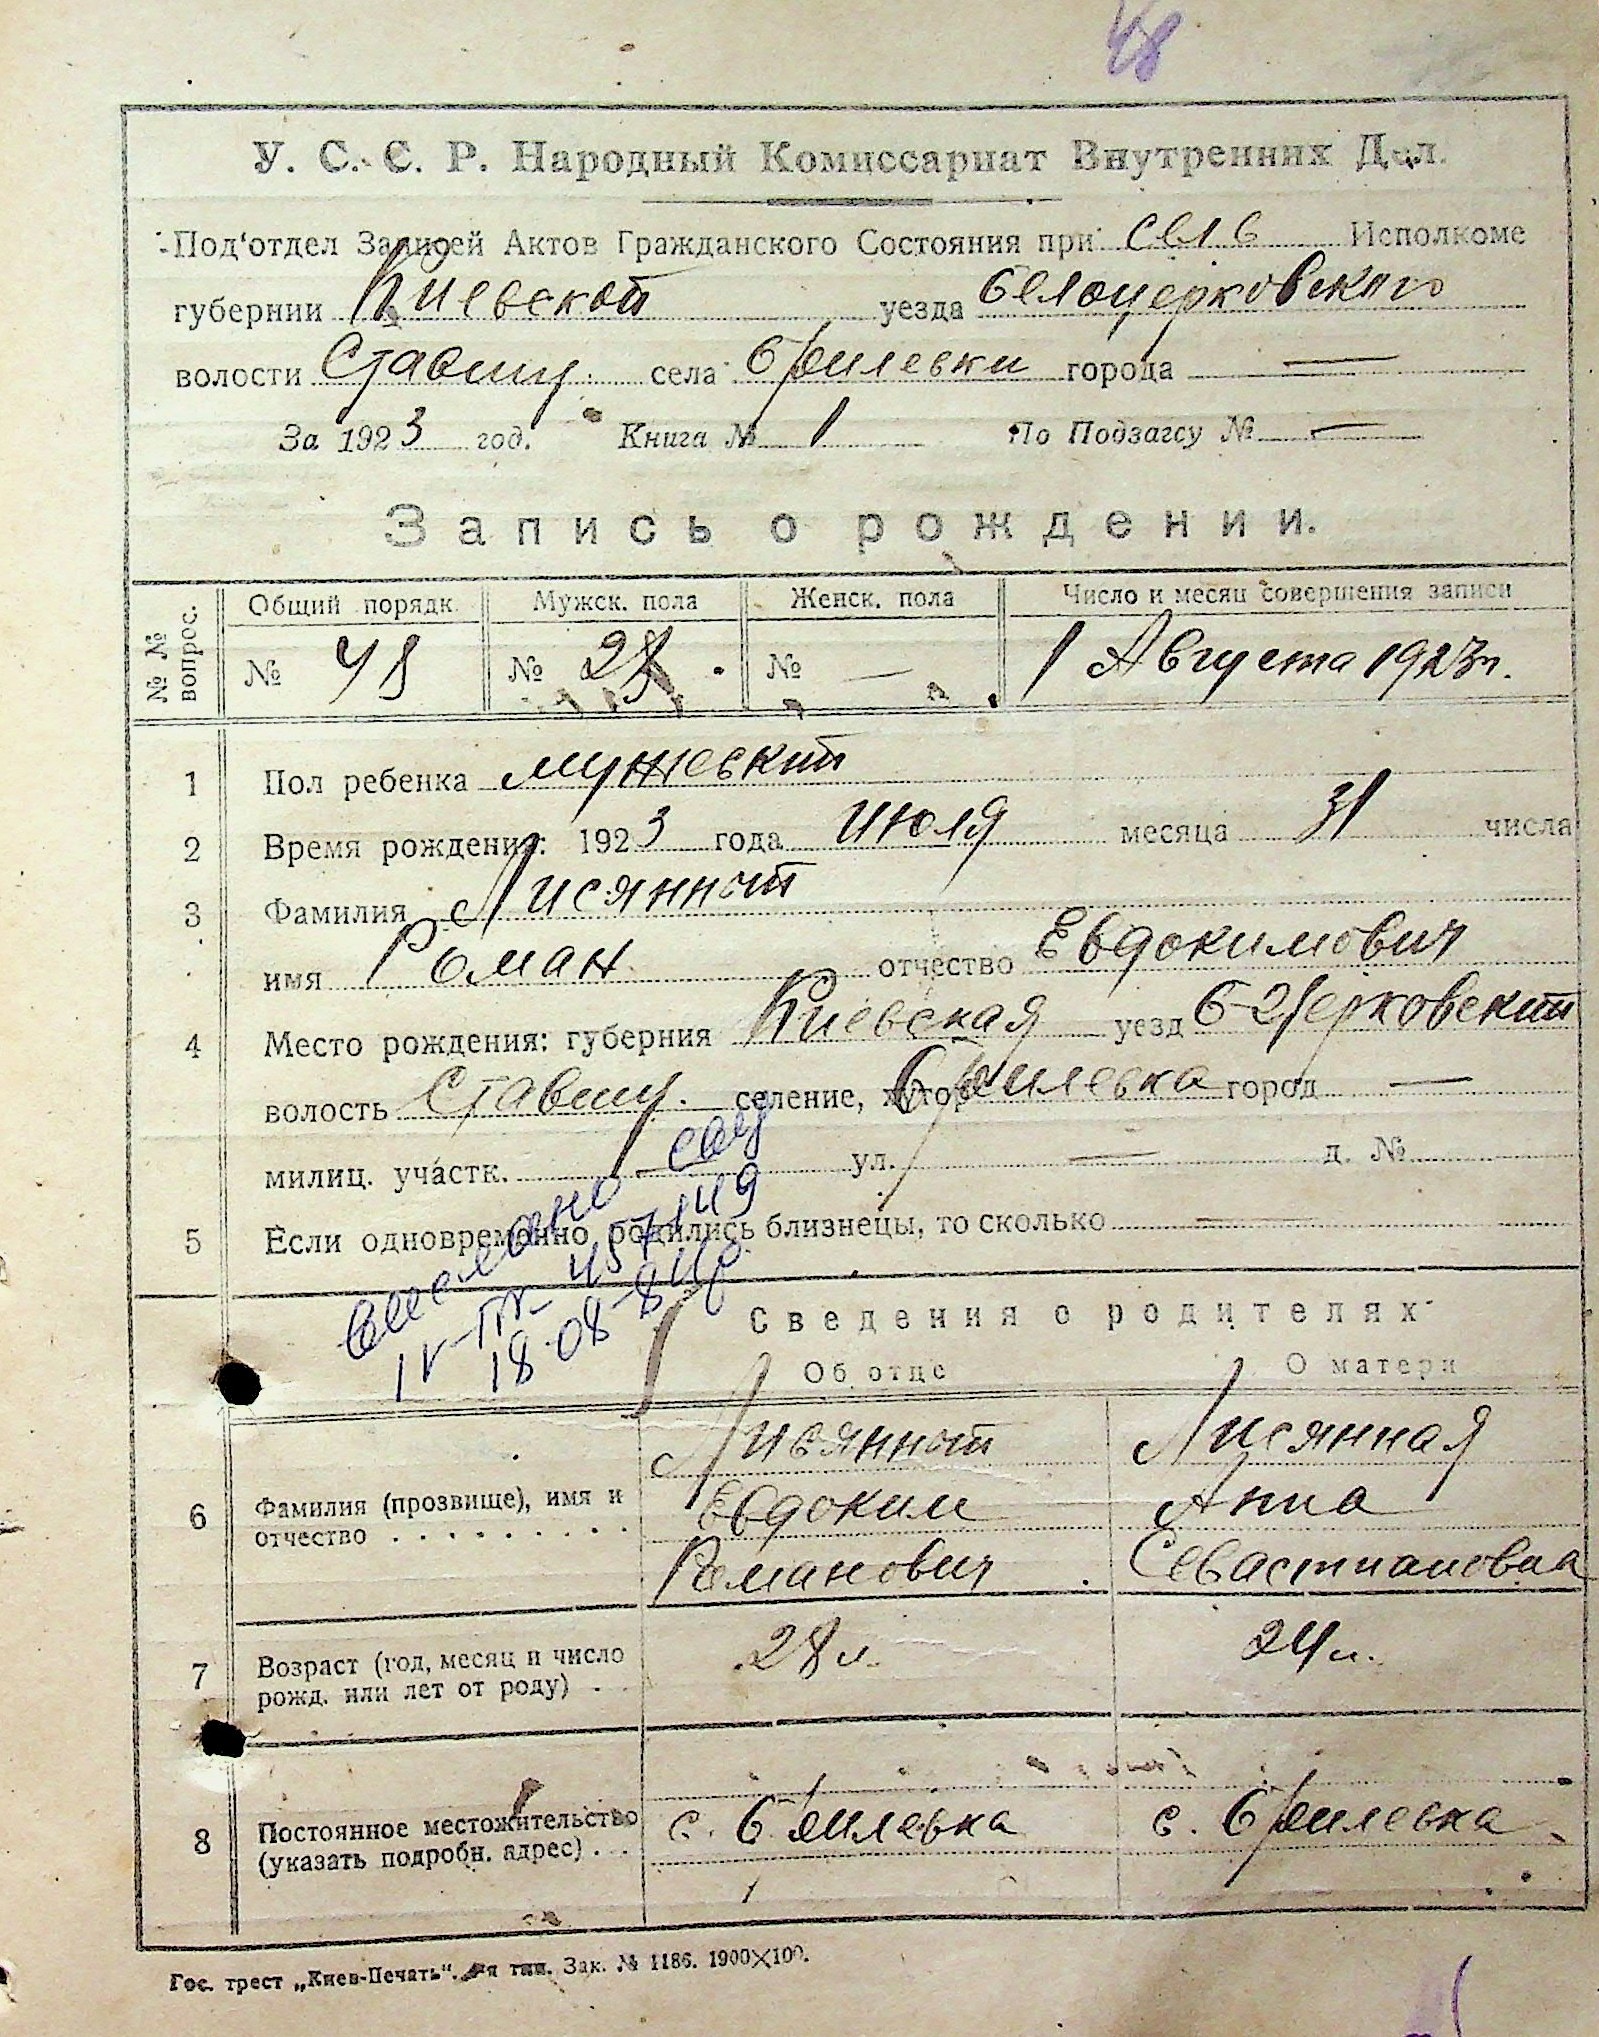 48
У. С. С. Р. Народный Комиссариат Внутренних Дел.
Под'отдел Записей Актов Гражданского Состояния при Исполкоме
губернии Киевской уезда Белоцерковского
волости Ставищ. села Брилевки города —
За 1923 год. Книга № 1 По Подзагсу № —
Запись о рождении.
№ № вопрос. Общий порядк. Мужск. пола Женск. пола Число и месяц совершения записи
№ 48 № 28 № — 1 Августа 1923 г.
1 Пол ребенка мужеский
2 Время рождения: 1923 года июля месяца 31 числа
3 Фамилия Лисянный
имя Роман отчество Евдокимович
4 Место рождения: губерния Киевская уезд Б-Церковский
волость Ставищ. селение, хутор Брилевка город —
милиц. участк. — ул. — д. №
5 Если одновременно родились близнецы, то сколько —
18-08-84
Сведения о родителях
Об отце О матери
Лисянный Лисянная
6 Фамилия (прозвище), имя и Евдоким Анна
отчество . . . . . . . . . Романович Севастиановна
7 Возраст (год, месяц и число 28 л. 24 л.
рожд. или лет от роду) . .
8 Постоянное местожительство с. Брилевка с. Брилевка
(указать подробн. адрес) . . .
Гос. трест „Киев-Печать“. тип. Зак. № 1186. 1900×100.